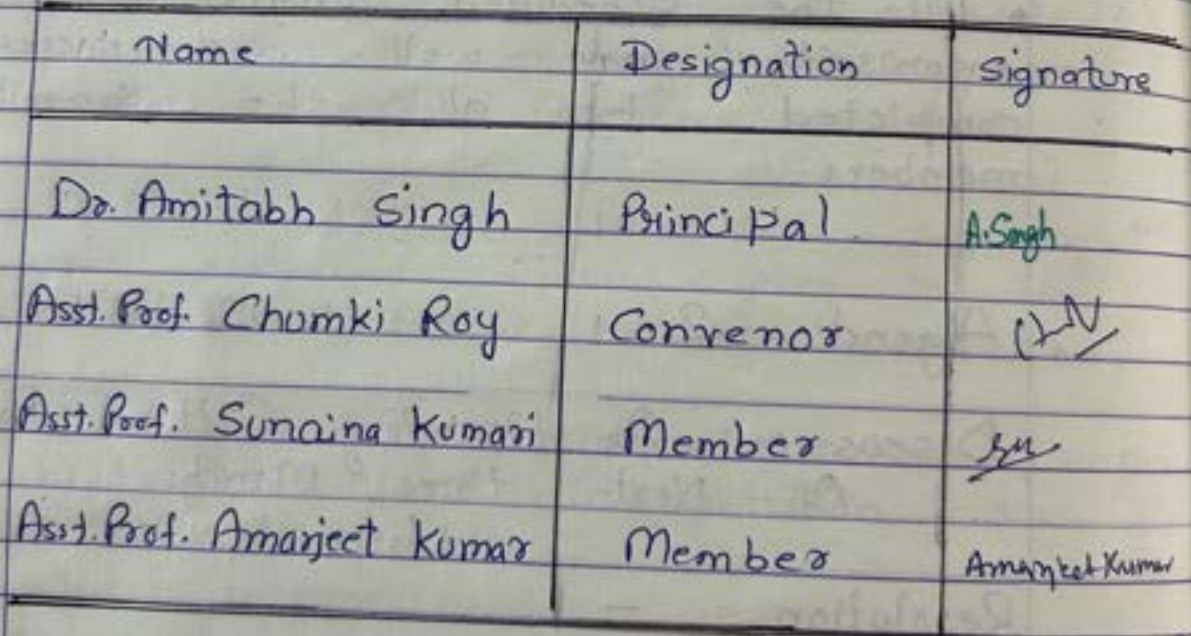 Name Designation Signature
Dr. Amitabh Singh Principal A.Singh
Asst. Prof. Chumki Roy Convenor
Asst. Prof. Sunaina Kumari Member
Asst. Prof. Amarjeet Kumar Member Amarjeet Kumar